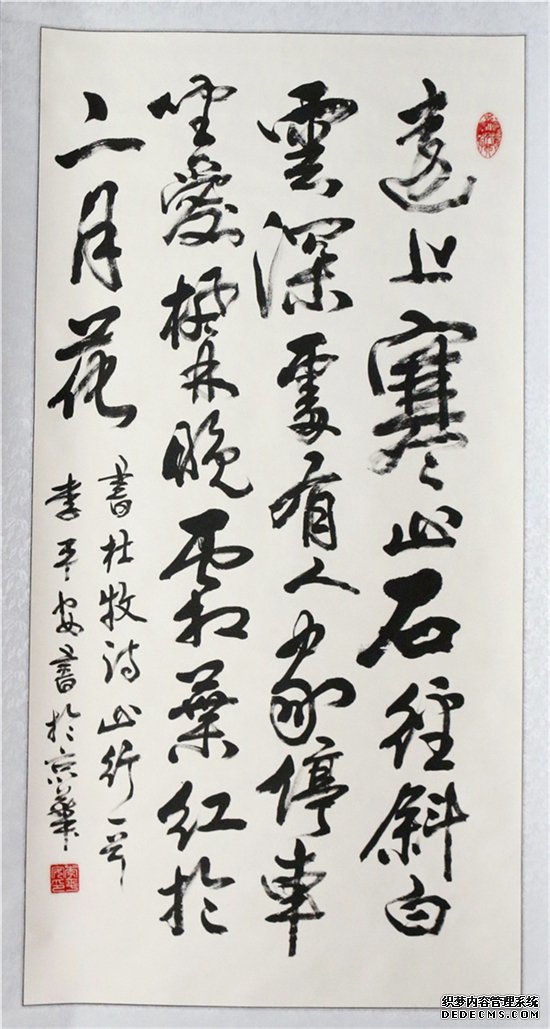 遠上寒山石徑斜白
雲深處有人家停車
坐愛楓林晚霜葉紅於
二月花
書杜牧詩山行一首
李平安書於京華
织梦内容管理系统
DEDECMS.COM